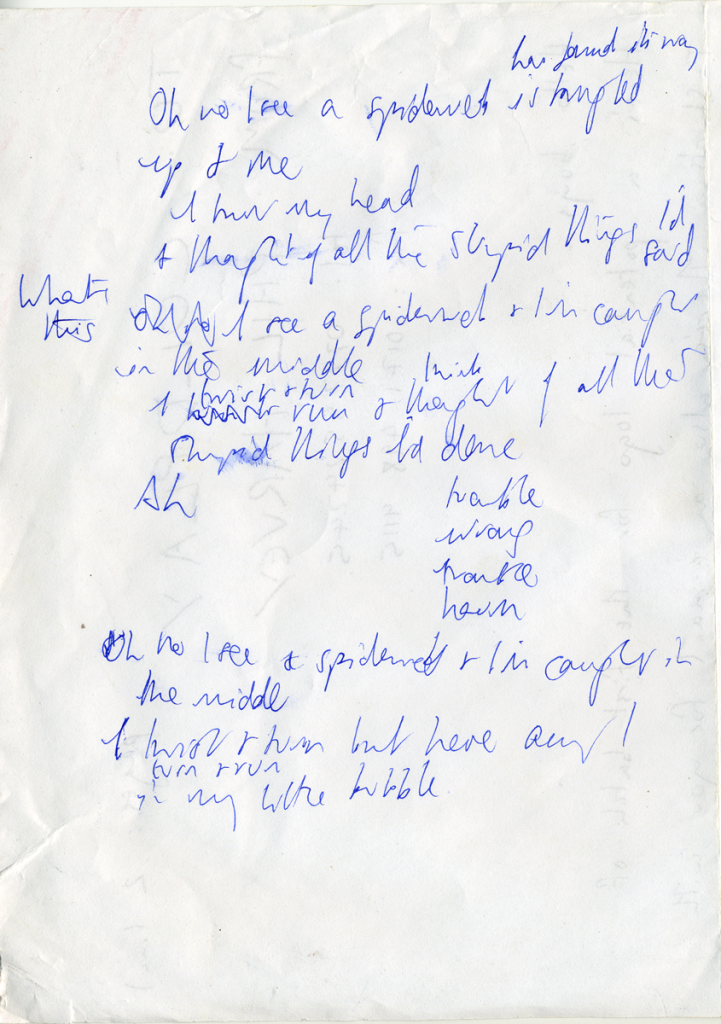 has found its way
Oh no I see a spiderweb is tangled
up & me
I turn my head
& thought of all the stupid things I'd
said
What's
this Oh no I see a spiderweb & I'm caught
in the middle
twist & turn think
I run & thought of all the
stupid things I'd done
Ah trouble
wrong
trouble
harm
Oh no I see a spiderweb & I'm caught in
the middle
I twist & turn but here am I
turn & run
in my little bubble